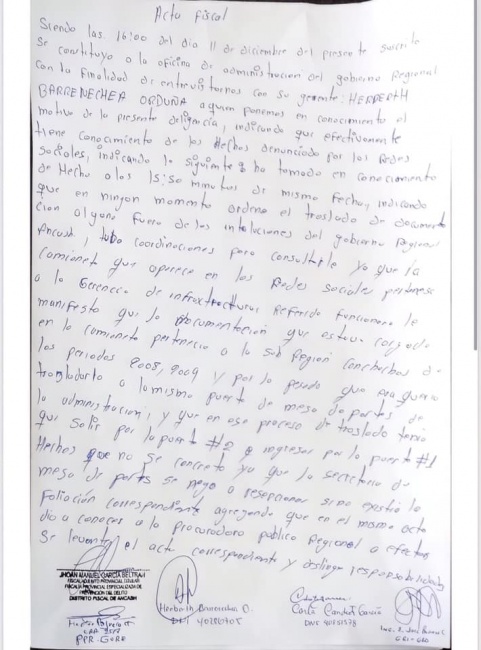 Acta Fiscal
Siendo las 16:00 del dia 11 de diciembre del presente suscrito
Se constituyo a la oficina de administracion del gobierno Regional
con la finalidad de entrevistarnos con su gerente: HERBERTH
BARRENECHEA ORDUÑA a quien ponemos en conocimiento el
motivo de la presente deligencia, indicando que efectivamente
tiene conocimiento de los Hechos denunciado por las Redes
sociales, indicando lo siguiente ha tomado en conocimiento
de Hecho a las 15:50 minutos de misma fecha, indicando
que en ningun momento ordeno el traslado de documenta
cion alguna fuera de las del gobierno Regional
Ancash, tubo coordinaciones para ya que la
camioneta que aperece en las Redes sociales pertenese
a la Gerencia de infraestructura Referido funcionario le
manifesto que la documentación que estava cargada
en la camioneta pertenecia a la Sub Region Conchucos de
los periodos 2008, 2009 y por lo pesado que era queria
trasladarlo a la misma puerta de mesa de partes de
la administracion, y que en ese proceso de traslado tenia
que salir por la puerta #2 e ingresar por la puerta #1
Hechos que no se concreto ya que la secretaria de
mesa de partes se nego a resepcionar si no existia la
Foliación correspondiente agregando que en el mismo acto
dio a conocer a la procuradora publico Regional a efectos
Se levante el acta correspondiente y deslinga responsabilidades
JHOAN MANUEL GARCIA BELTRAN
FISCAL ADJUNTO PROVINCIAL TITULAR
FISCALIA PROVINCIAL ESPECIALIZADA DE
PREVENCION DEL DELITO
DISTRITO FISCAL DE ANCASH
Herberth Barrenechea O.
DNI 40286705
Carla Candat Garcia
DNI
PPR. GORE